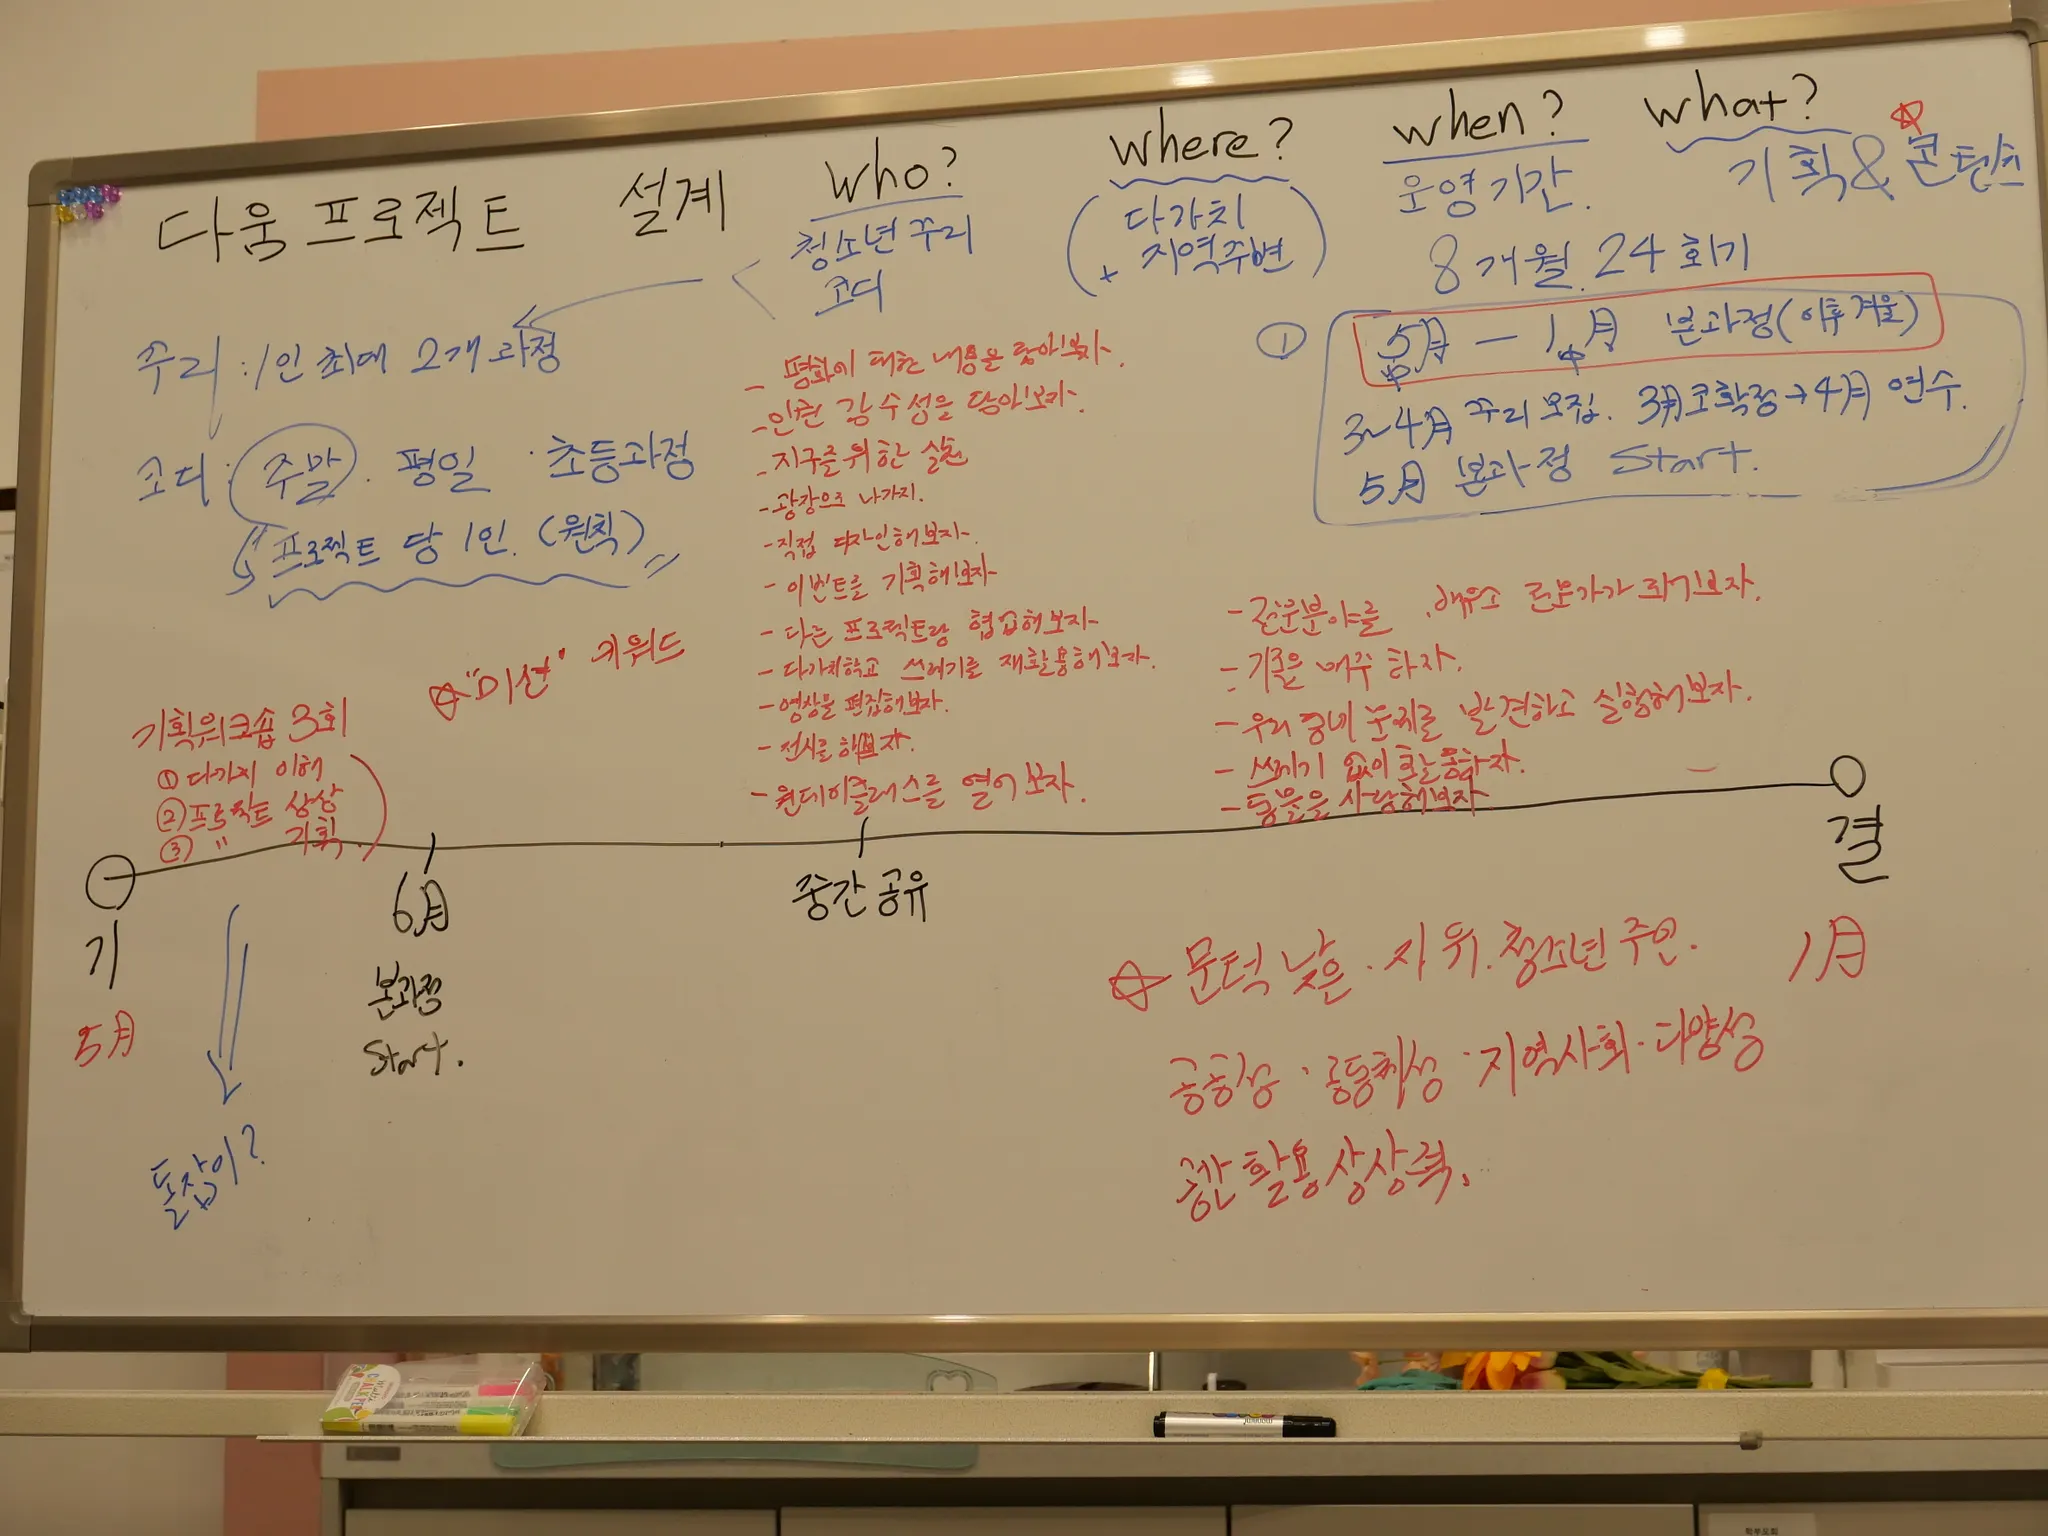 다움 프로젝트 설계
who?
청소년 꾸리
코디
where?
다가치
+ 지역주변
when?
운영기간.
8개월. 24회기
what?
기획 & 콘텐츠
꾸리 : 1인 최대 2개 과정
코디 : 주말 · 평일 · 초등과정
프로젝트 당 1인. (원칙)
① 5月 — 1月 본과정(이후 겨울)
3~4月 꾸리 모집. 3月 코확정→4月 연수.
5月 본과정 Start.
"미션" 키워드
- 평화에 대한 내용을 담아보자.
- 인권 감수성을 담아보자.
- 지구를 위한 실천
- 광장으로 나가자.
- 직접 디자인해보자.
- 이벤트를 기획해보자
- 다른 프로젝트랑 협업해보자
- 다가치학교 쓰레기를 재활용해보자.
- 영상을 편집해보자.
- 전시를 해보자.
- 원데이클래스를 열어보자.
- 전문분야를 배우고 전문가가 되어보자.
- 기록은 매주 하자.
- 우리 동네 문제를 발견하고 실험해보자.
- 쓰레기 없이 활동하자.
- 동물을 사랑해보자
기획워크숍 3회
① 다가치 이해
② 프로젝트 상상
③ " 기획
기
5月
6月
본과정
Start.
중간공유
결
1月
돌잡이?
문턱 낮은 · 자유 · 청소년 주인.
공공성 · 공동체성 · 지역사회 · 다양성
공간 활용 상상력.